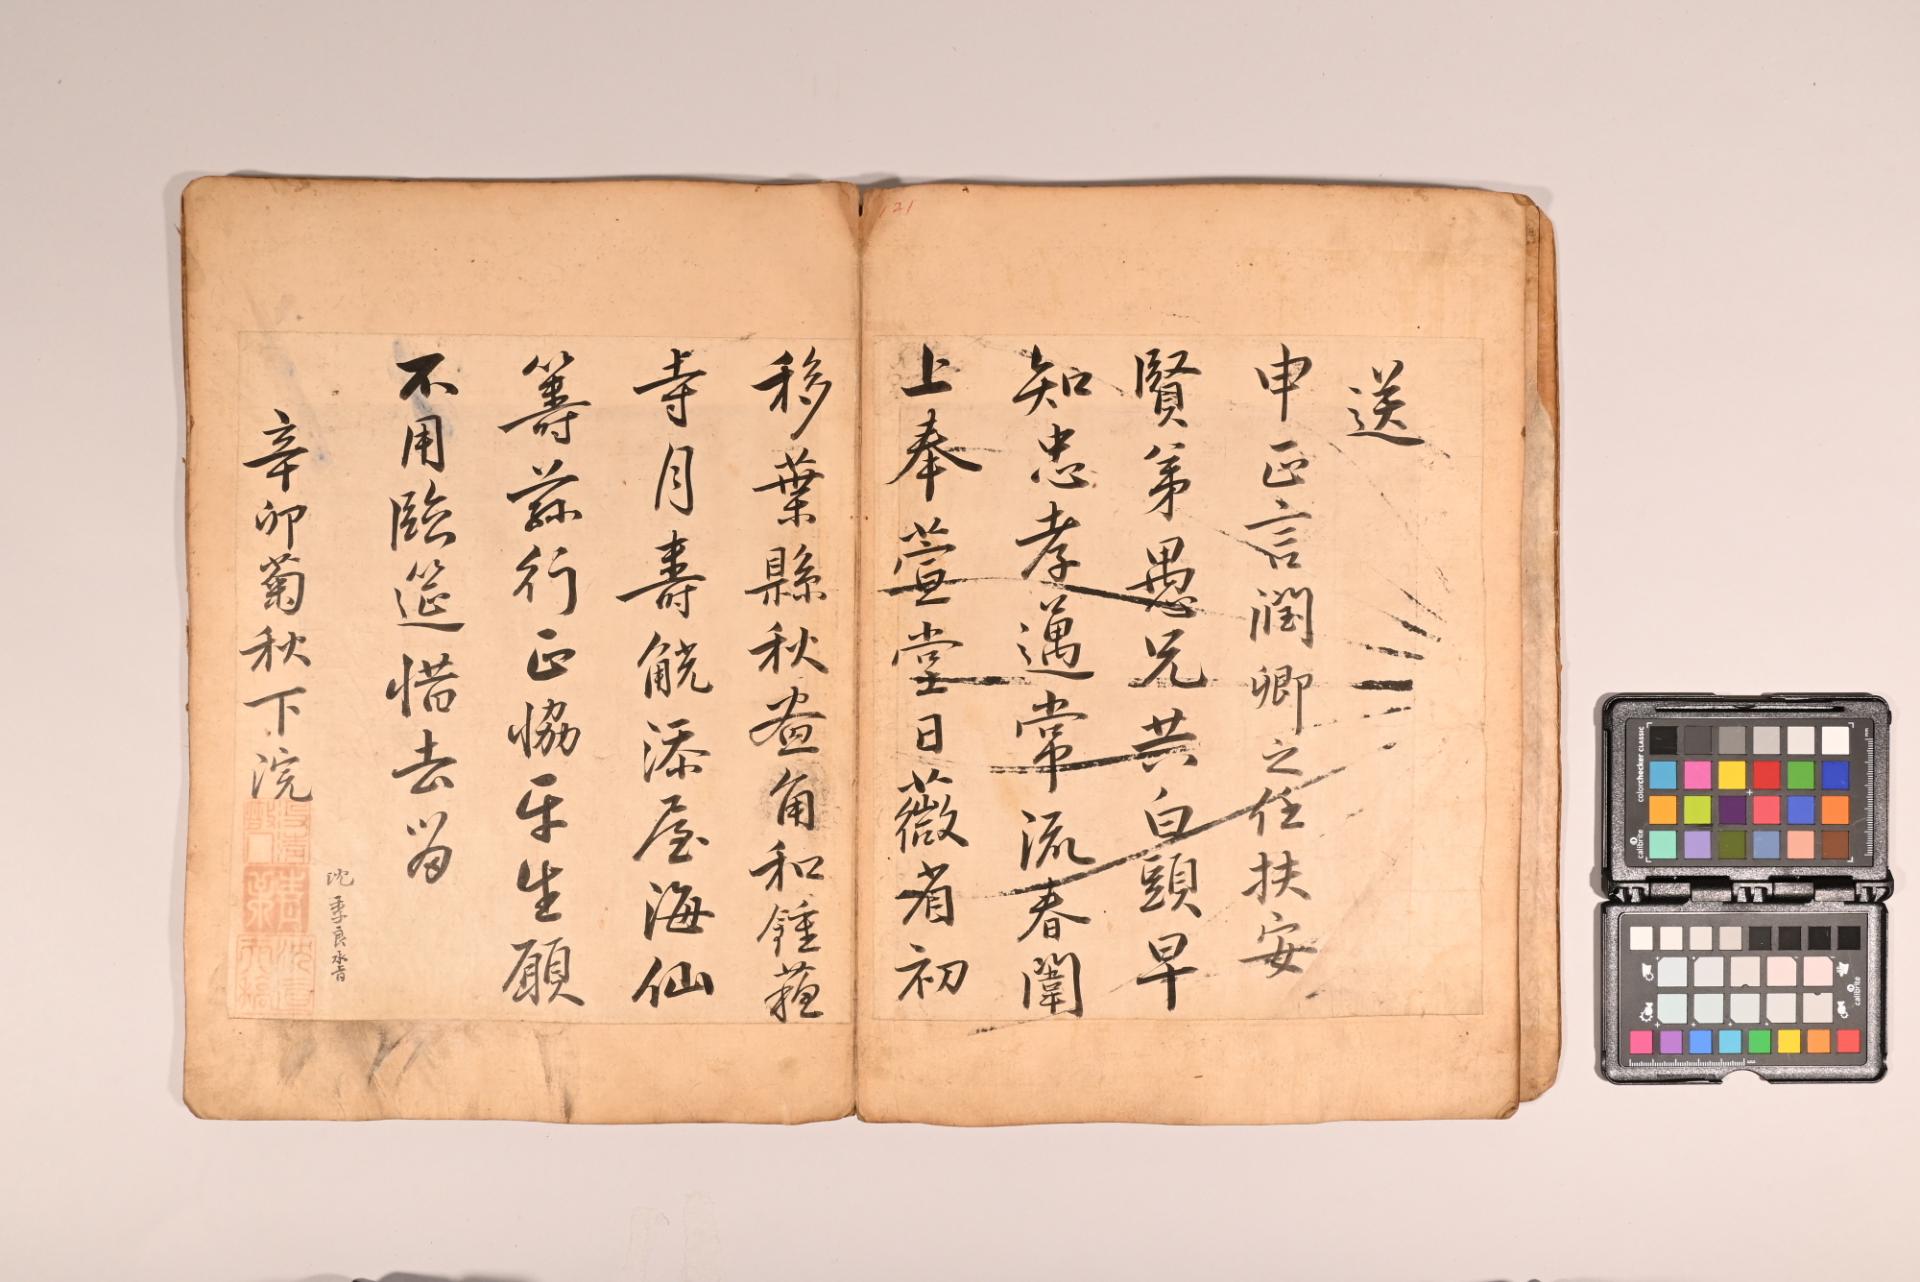 121
送
申正言潤卿之任扶安
賢弟愚兄共白頭早
知忠孝邁常流春闈
上奉萱堂日薇省初
移葉縣秋畫角和鍾蘓
寺月壽觥添屋海仙
籌茲行正恊平生願
不用臨筵惜去留
辛卯菊秋下浣
沈季良